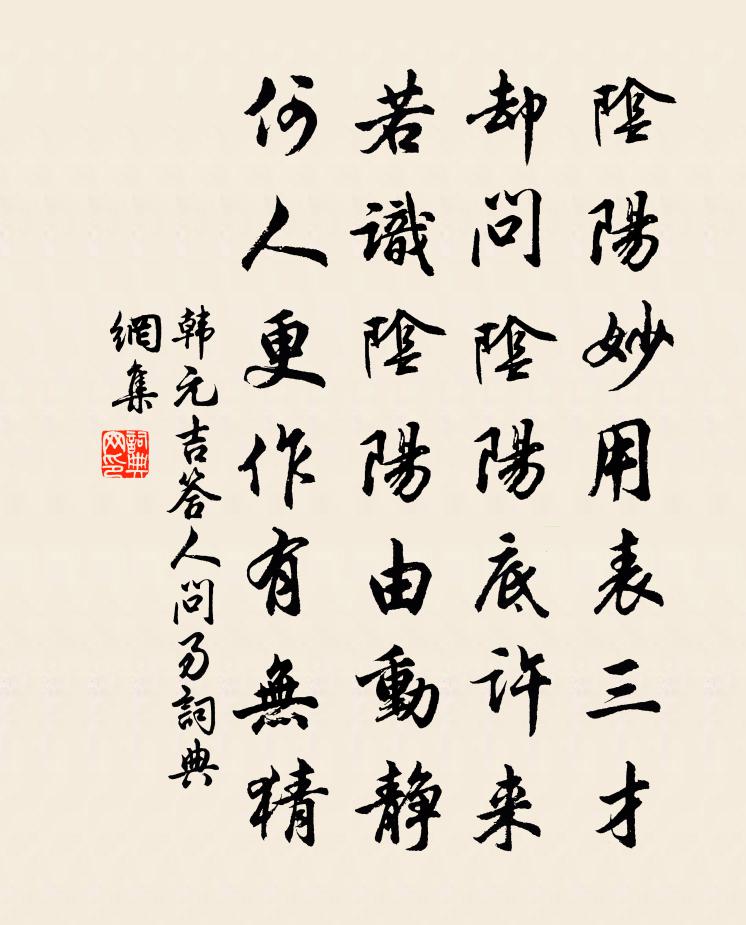 陰陽妙用表三才
却問陰陽底許来
若識陰陽由動静
何人更作有無猜
韩元吉答人問易詞典
網集
詞典
网印